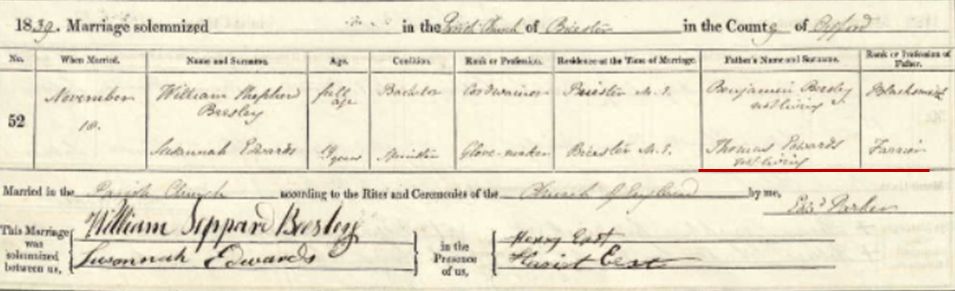 1839. Marriage solemnized in the Parish Church of Bicester in the County of Oxford
No. When Married. Name and Surname. Age. Condition. Rank or Profession. Residence at the Time of Marriage. Father's Name and Surname. Rank or Profession of Father.
52
November 18. William Shepherd Beesley full age Bachelor Cordwainer Bicester M.E. Benjamin Beesley not living Blacksmith
Susannah Edwards years Minor Glove-maker Bicester M.E. Thomas Edwards not living Farrier
Married in the Parish Church according to the Rites and Ceremonies of the Church of England by me,
Parker
This Marriage was solemnized between us,
William Seppard Beesley
Susannah Edwards
in the Presence of us,
Henry East
Hariot East